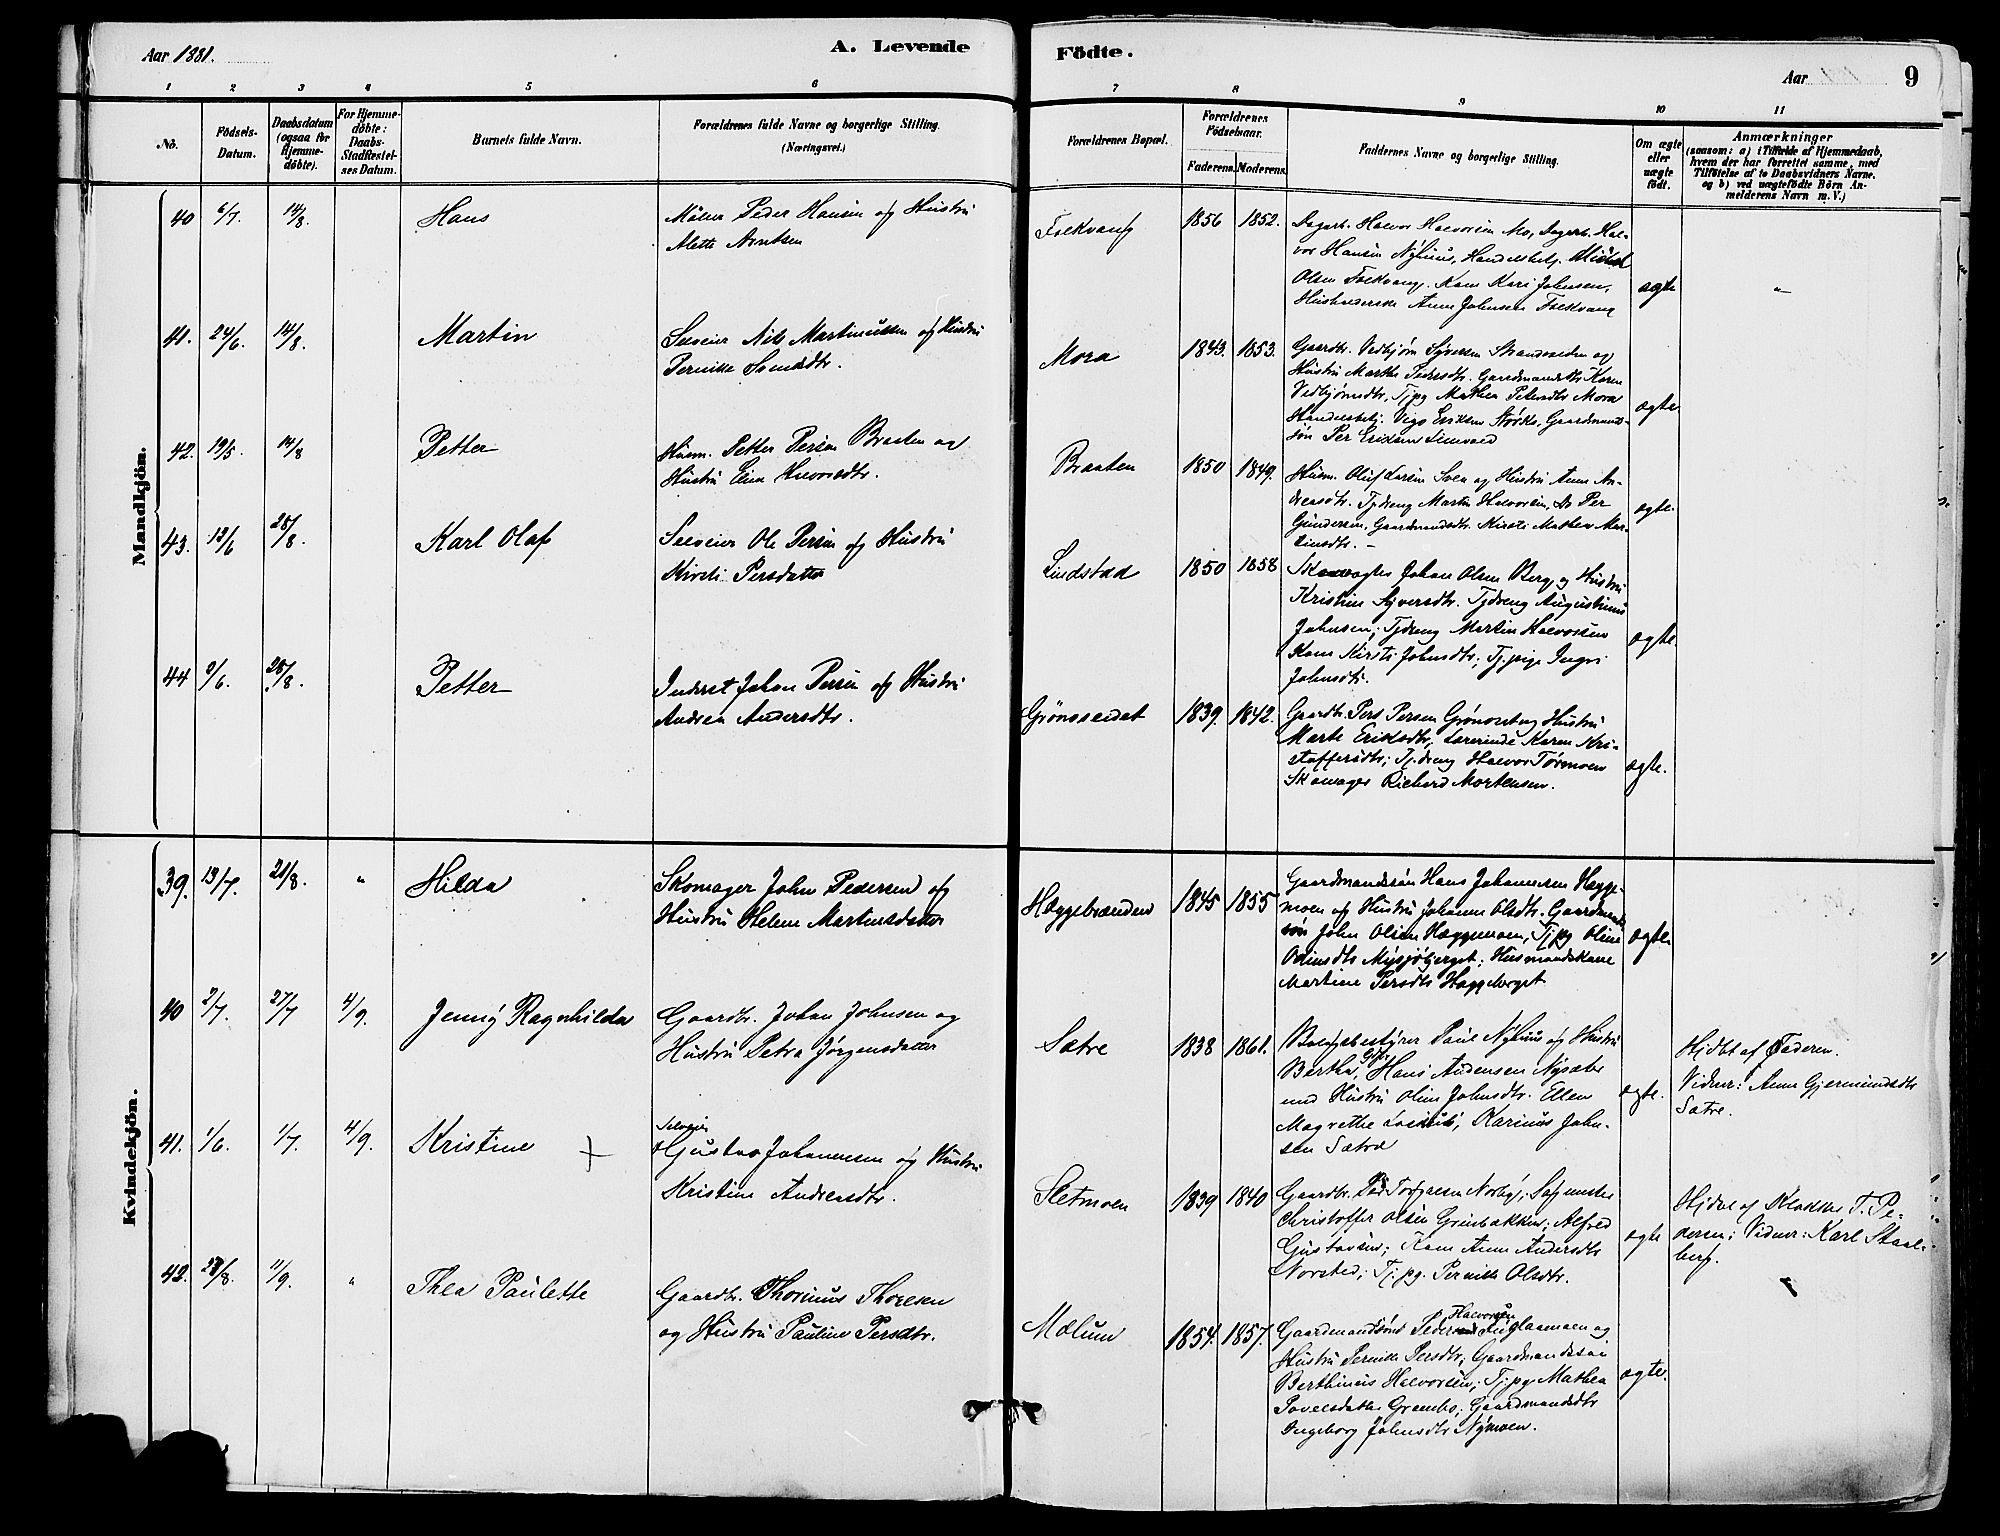 Aar 1881.
A. Levende
Födte.
Aar
9
1 2 3 4 5 6 7 8 9 10 11
No.
Födsels-Datum.
Daabsdatum (ogsaa for Hjemmedöbte).
For Hjemmedöbte: Daabs-Stadfæstelses Datum.
Barnets fulde Navn.
Forældrenes fulde Navne og borgerlige Stilling.
(Næringsvei.)
Forældrenes Bopæl.
Forældrenes Födselsaar.
Faderens.
Moderens.
Faddernes Navne og borgerlige Stilling.
Om ægte eller uægte födt.
Anmærkninger
(saasom: a) i Tilfælde af Hjemmedaab,
hvem der har forrettet samme, med
Tilföielse af to Daabsvidners Navne.
og b) ved uægtefödte Börn An-
melderens Navn m. V.)
Mandkjön.
40 6/7. 14/8. Hans
Peder Hansen og Hustru
Mette Arntsen
Folkvang 1856 1852.
Dagarb. Halvor Halvorsen Mo, Dagarb. Hal-
vor Hansen Nyhuus, Handelsbetj.
Olsen Folkvang. Kone Kari Johnsen,
Husholderske Anne Johnsen Folkvang
ægte "
41. 24/6. 14/8. Martin
Selveier Nils Martinussen og Hustru
Pernille
Mora 1843. 1853.
Gaardbr. Vedbjørn Syversen Strandvolden og
Hustru Marthe Pedersdtr. Gaardmandsdtr. Karen
Vedbjørnsdtr, Tj.pg Mathea Petersdtr Mora
Handelsbetj. Vigo Eriksen Gaardmands-
søn Per Eriksen
ægte.
42. 19/5. 14/8 Petter
Husm. Petter Persen Braaten og
Hustru Eline Halvorsdtr.
Braaten 1850 1849.
Husm. Oluf Larsen Svea og Hustru Anne An-
dreasdtr. Tjdreng Martin Halvorsen, Do Per
Gundersen, Gaardmandsdtr. Kirsti Mathea Mar-
tinsdtr. –
ægte.
43. 13/6 28/8. Karl Olaf
Selveier Ole Persen og Hustru
Kirsti Persdatter
Lindstad 1850 1858
Johan Olsen Berg og Hustru
Kristine Syversdtr. Tjdreng Augustinus
Johnsen; Tjdreng Martin Halvorsen
Kone Kirsti Johnsdtr; Tj.pige Ingri
Johnsdtr.
ægte.
44 9/6. 28/8. Petter
Inderst Johan Persen og Hustru
Andrea Andersdtr.
Grønoset 1839. 1842.
Gaardbr. Per Persen Grønoset og Hustru
Marte Eriksdtr, Lærerinde Karen Kri-
stoffersdtr; Tj.dreng Halvor Tørmoen
Skomager Richard Mortensen.
ægte.
Kvindekjön.
39. 13/7. 28/8. " Hilda
Skomager John Pedersen og
Hustru Helene Martinsdatter
Hæggebrænden 1845 1855
Gaardmandssøn Hans Johannesen Hægge-
moen og Hustru Johanne Olsdtr. Gaardmands-
søn John Olsen Hæggemoen, Tj.pg Oline
Odinsdtr Mysjøberget; Husmandskone
Martine Persdtr Haggeberget
ægte.
40 2/7. 27/7 4/9. Jenny Ragnhilda
Gaardbr. Johan Johnsen og
Hustru Petra Jørgensdatter
Sætre 1838 1861.
Bolagsbestyrer Paul Nyhuus og Hustru
Bertha, Gbr. Hans Andersen Nysæter
med Hustru Oline Johnsdtr. Ellen
Magrethe Karinus John-
sen Sætre
ægte.
Hjdbt af Faderen.
Vidner: Anne Gjermundsdtr
Sætre.
41. 1/6. 1/7. 4/9. Kristine +
Selveier
Gustav Johannesen og Hustru
Kristine Andreasdtr.
Sletmoen 1839 1840
Gaardbr. Per Torgersen Norby; Sagmester
Christoffer Olsen Grinbakken; Alfred
Gustavsen; Kone Anne Andersdtr
Norsted; Tj.pg. Pernille Olsdtr.
ægte
Hjdbt af Klokker T. Pe-
dersen; Vidner: Karl Staal-
berg.
42. 27/8. 11/9. " Thea Paulette
Gaardbr. Thorinus Thoresen
og Hustru Pauline Persdtr.
Mælum 1854. 1857.
Halvorsen
Gaardmandssøn Peder Fuglaamoen og
Hustru Pernille Persdtr; Gaardmandssøn
Berthinius Halvorsen; Tj.pg Mathea
Povelsdatter Grambo; Gaardmandsdtr
Ingeborg Johnsdtr Nymoen.
ægte.